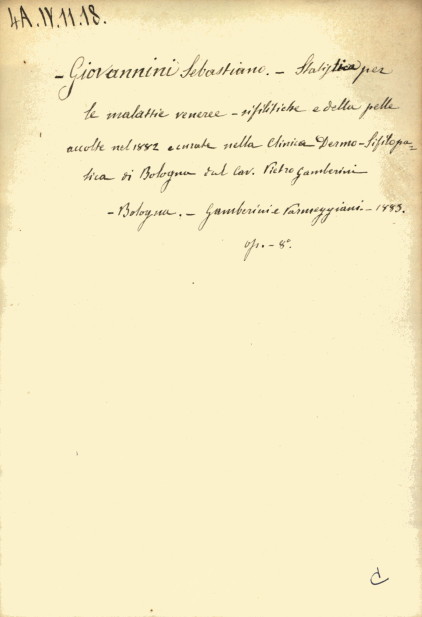 4A.IV.11.18.
- Giovannini Sebastiano. - Statistica per
le malattie veneree - sifilitiche e della pelle
accolte nel 1882 e curate nella Clinica Dermo-Sifilopa-
tica di Bologna dal Cav. Pietro Gamberini
- Bologna. - Gamberini e Parmeggiani. - 1883.
op. - 8°.